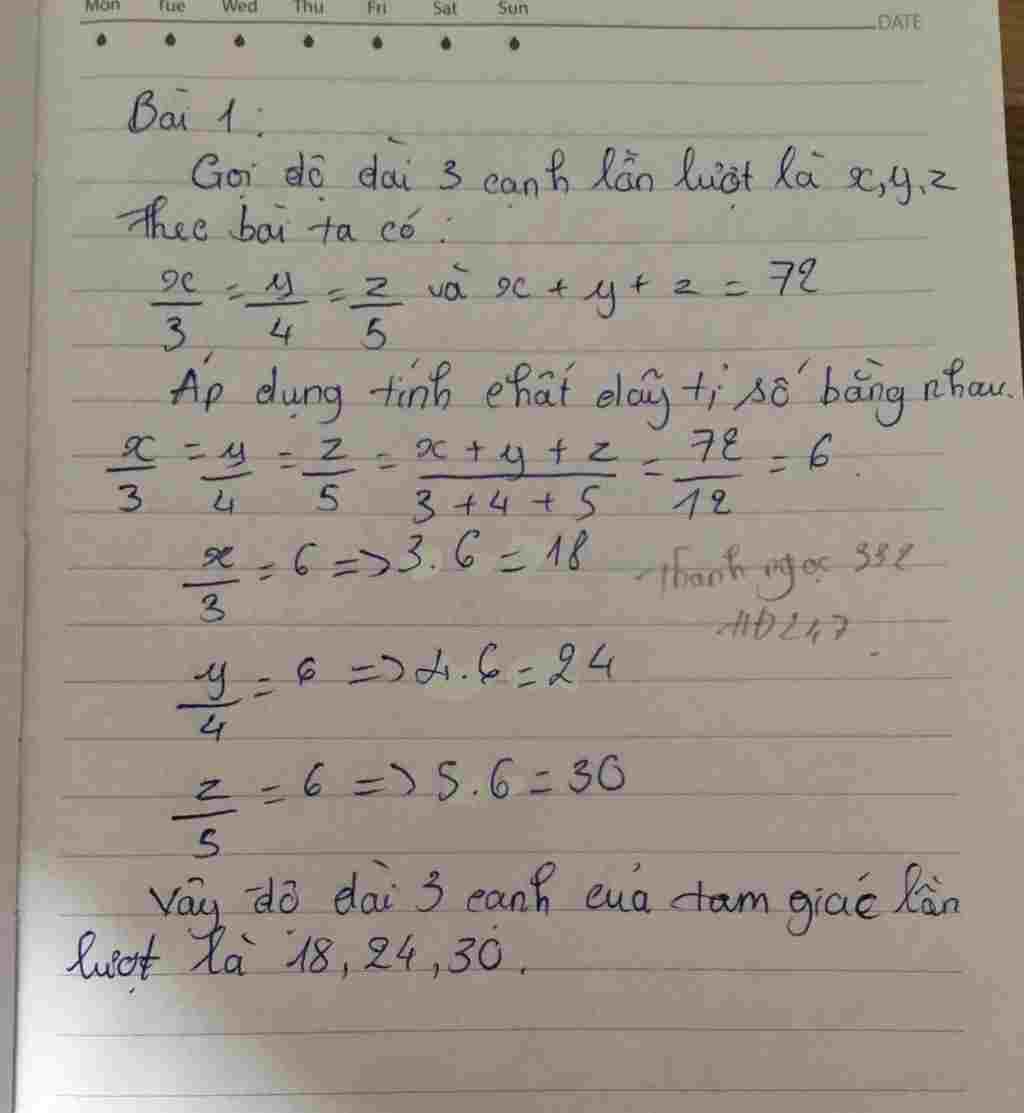 Mon Tue Wed Thu Fri Sat Sun
DATE
Bài 1:
Gọi độ dài 3 cạnh lần lượt là x, y, z
Theo bài ta có:
x/3 = y/4 = z/5 và x + y + z = 72
Áp dụng tính chất dãy tỉ số bằng nhau.
x/3 = y/4 = z/5 = (x + y + z)/(3 + 4 + 5) = 72/12 = 6.
x/3 = 6 => 3.6 = 18
thanh ngọc 332
y/4 = 6 => 4.6 = 24
z/5 = 6 => 5.6 = 30
Vậy độ dài 3 cạnh của tam giác lần
lượt là 18, 24, 30.